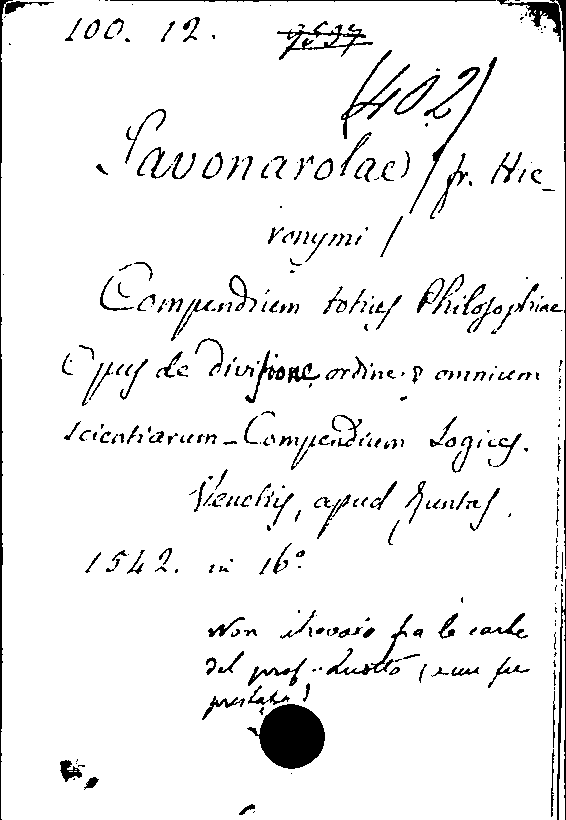 100. 12. 9537
(402)
Savonarolae / fr. Hie-
ronymi /
Compendium totius Philosophiae
Opus de divisione ordine & omnium
scientiarum - Compendium Logices.
Venetiis, apud Juntas.
1542. in 16°
Non itrovato fra le carte
del prof. (cui fu
prestata)